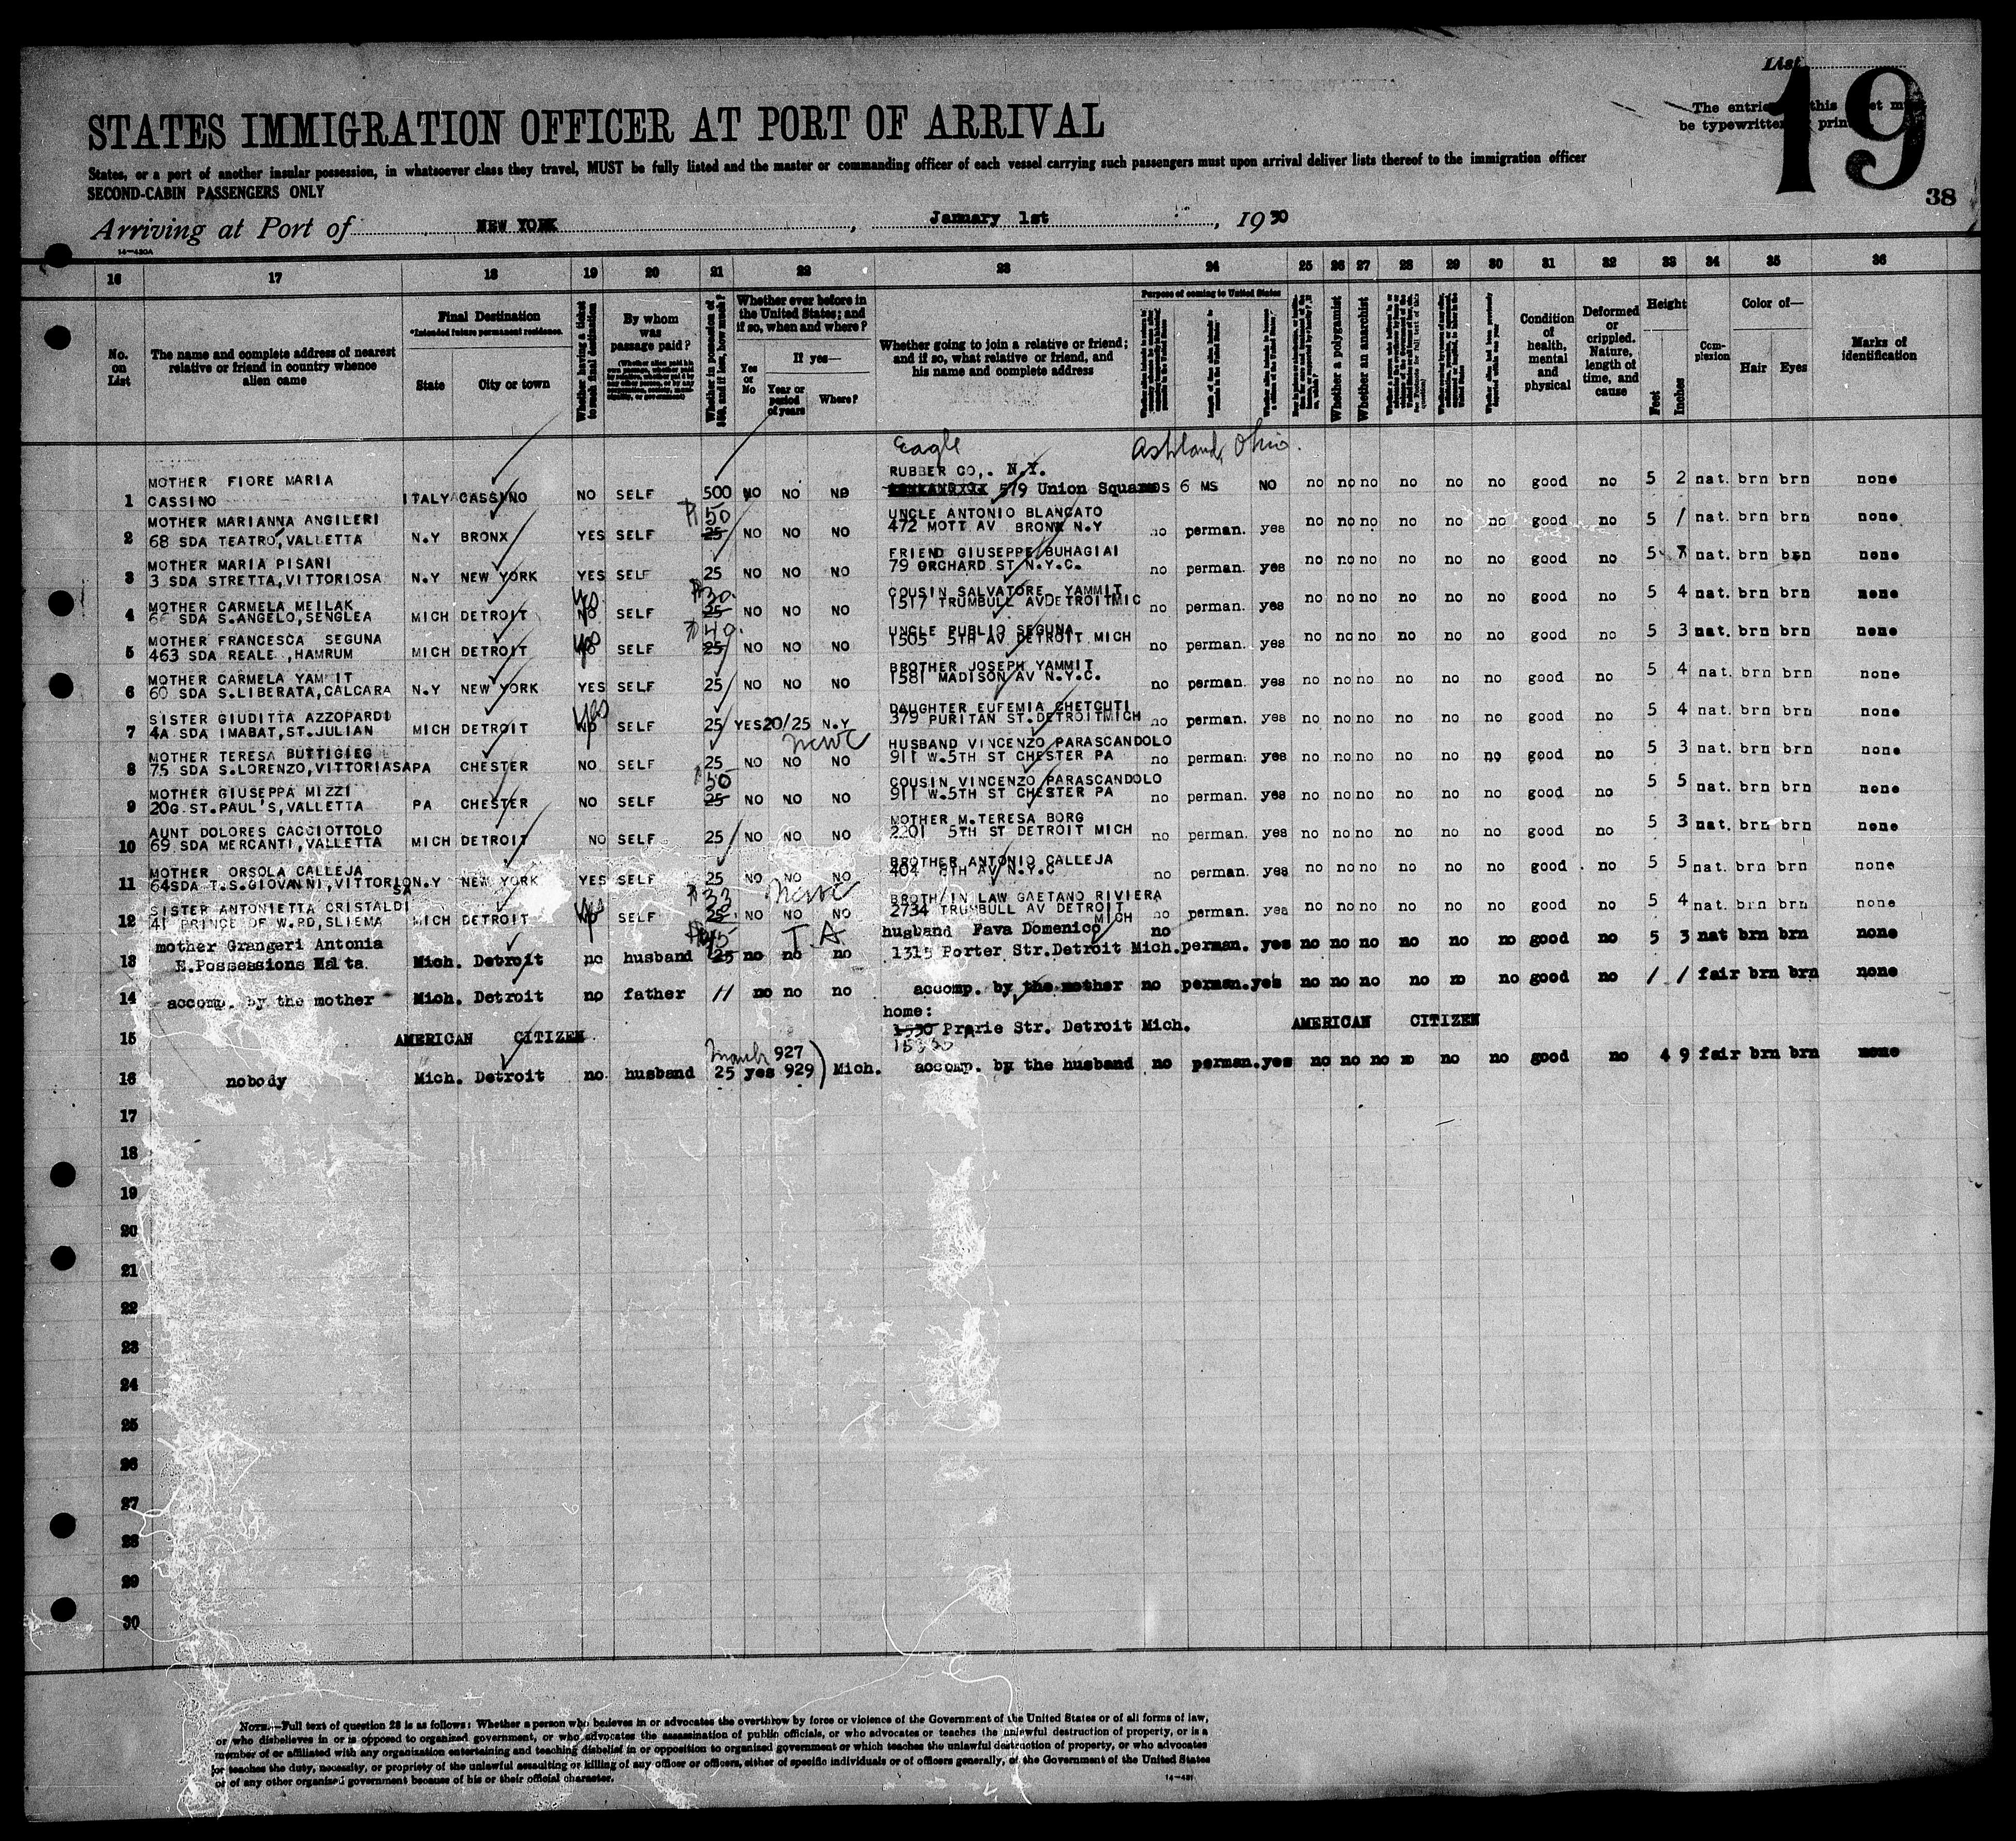 List
19
The entries this sheet must
be typewritten or printed.
STATES IMMIGRATION OFFICER AT PORT OF ARRIVAL
States, or a port of another insular possession, in whatsoever class they travel, MUST be fully listed and the master or commanding officer of each vessel carrying such passengers must upon arrival deliver lists thereof to the immigration officer
SECOND-CABIN PASSENGERS ONLY
38
Arriving at Port of NEW YORK, January 1st, 1930
14—430A
16 17 18 19 20 21 22 23 24 25 26 27 28 29 30 31 32 33 34 35 36
No. on List
The name and complete address of nearest relative or friend in country whence alien came
Final Destination
*Intended future permanent residence.
State
City or town
Whether having a ticket to such final destination
By whom was passage paid?
Whether in possession of $50, and if less, how much?
Whether ever before in the United States; and if so, when and where?
Yes or No
If yes—
Year or period of years
Where?
Whether going to join a relative or friend; and if so, what relative or friend, and his name and complete address
Purpose of coming to United States
Whether a polygamist
Whether an anarchist
Condition of health, mental and physical
Deformed or crippled. Nature, length of time, and cause
Height
Feet
Inches
Complexion
Color of—
Hair
Eyes
Marks of identification
Eagle Ashland, Ohio.
MOTHER FIORE MARIA RUBBER CO,. N.Y.
1 CASSINO ITALY CASSINO NO SELF 500 NO NO NO 579 Union Square 6 MS NO no no no no no no good no 5 2 nat. brn brn none
MOTHER MARIANNA ANGILERI 50 UNCLE ANTONIO BLANCATO
2 68 SDA TEATRO, VALLETTA N.Y BRONX YES SELF 25 NO NO NO 472 MOTT AV BRONX N.Y no perman. yes no no no no no no good no 5 / nat. brn brn none
MOTHER MARIA PISANI FRIEND GIUSEPPE BUHAGIAI
3 3 SDA STRETTA, VITTORIOSA N.Y NEW YORK YES SELF 25 NO NO NO 79 ORCHARD ST N.Y.C. no perman. yes no no no no no no good no 5 7 nat. brn brn none
MOTHER CARMELA MEILAK yes $30. COUSIN SALVATORE YAMMIT
4 66 SDA S.ANGELO, SENGLEA MICH DETROIT NO SELF 25 NO NO NO 1517 TRUMBULL AV DETROIT MIC no perman. yes no no no no no no good no 5 4 nat. brn brn none
MOTHER FRANCESCA SEGUNA yes 40. UNCLE PUBLIO SEGUNA
5 463 SDA REALE ,HAMRUM MICH DETROIT NO SELF 25 NO NO NO 1505 5TH AV DETROIT MICH no perman. yes no no no no no no good no 5 3 nat. brn brn none
MOTHER CARMELA YAMMIT BROTHER JOSEPH YAMMIT
6 60 SDA S.LIBERATA, CALCARA N.Y NEW YORK YES SELF 25 NO NO NO 1581 MADISON AV N.Y.C. no perman. yes no no no no no no good no 5 4 nat. brn brn none
SISTER GIUDITTA AZZOPARDI yes DAUGHTER EUFEMIA CHETCUTI
7 4A SDA IMABAT, ST.JULIAN MICH DETROIT NO SELF 25 YES 20/25 N.Y 379 PURITAN ST. DETROIT MICH no perman. yes no no no no no no good no 5 4 nat. brn brn none
MOTHER TERESA BUTTIGIEG HUSBAND VINCENZO PARASCANDOLO
8 75 SDA S.LORENZO, VITTORIASA PA CHESTER NO SELF 25 NO NO NO 911 W.5TH ST CHESTER PA no perman. yes no no no no no no good no 5 3 nat. brn brn none
MOTHER GIUSEPPA MIZZI 50 COUSIN VINCENZO PARASCANDOLO
9 20G.ST.PAUL'S, VALLETTA PA CHESTER NO SELF 25 NO NO NO 911 W.5TH ST CHESTER PA no perman. yes no no no no no no good no 5 5 nat. brn brn none
AUNT DOLORES CACCIOTTOLO MOTHER M.TERESA BORG
10 69 SDA MERCANTI, VALLETTA MICH DETROIT NO SELF 25 NO NO NO 2201 5TH ST DETROIT MICH no perman. yes no no no no no no good no 5 3 nat. brn brn none
MOTHER ORSOLA CALLEJA BROTHER ANTONIO CALLEJA
11 64SDA T.S.GIOVANNI, VITTORIOSA N.Y NEW YORK YES SELF 25 NO NO NO 404 8TH AV N.Y.C no perman. yes no no no no no no good no 5 5 nat. brn brn none
SISTER ANTONIETTA CRISTALDI yes $33 BROTH/IN LAW GAETANO RIVIERA
12 41 PRINCE OF W.RD, SLIEMA MICH DETROIT NO SELF 25 NO NO NO 2734 TRUMBULL AV DETROIT MICH no perman. yes no no no no no no good no 5 4 nat. brn brn none
mother Grangeri Antonia $45 T.A husband Fava Domenico no
13 E.Possessions Malta Mich. Detroit no husband 25 no no no 1315 Porter Str.Detroit Mich. perman. yes no no no no no no good no 5 3 nat brn brn none
14 accomp. by the mother Mich. Detroit no father // no no no accomp. by the mother no perman. yes no no no no no no good no / / fair brn brn none
home:
15 AMERICAN CITIZEN 1530 Prarie Str. Detroit Mich. AMERICAN CITIZEN
March 927
16 nobody Mich. Detroit no husband 25 yes 929) Mich. accomp. by the husband no perman. yes no no no no no no good no 4 9 fair brn brn none
17
18
19
20
21
22
23
24
25
26
27
28
29
30
NOTE.—Full text of question 28 is as follows: Whether a person who believes in or advocates the overthrow by force or violence of the Government of the United States or of all forms of law,
or who disbelieves in or is opposed to organized government, or who advocates the assassination of public officials, or who advocates or teaches the unlawful destruction of property, or is a
member of or affiliated with any organization entertaining and teaching disbelief in or opposition to organized government or which teaches the unlawful destruction of property, or who advocates
or teaches the duty, necessity, or propriety of the unlawful assaulting or killing of any officer or officers, either of specific individuals or of officers generally, of the Government of the United States
or of any other organized government because of his or their official character.
14—431